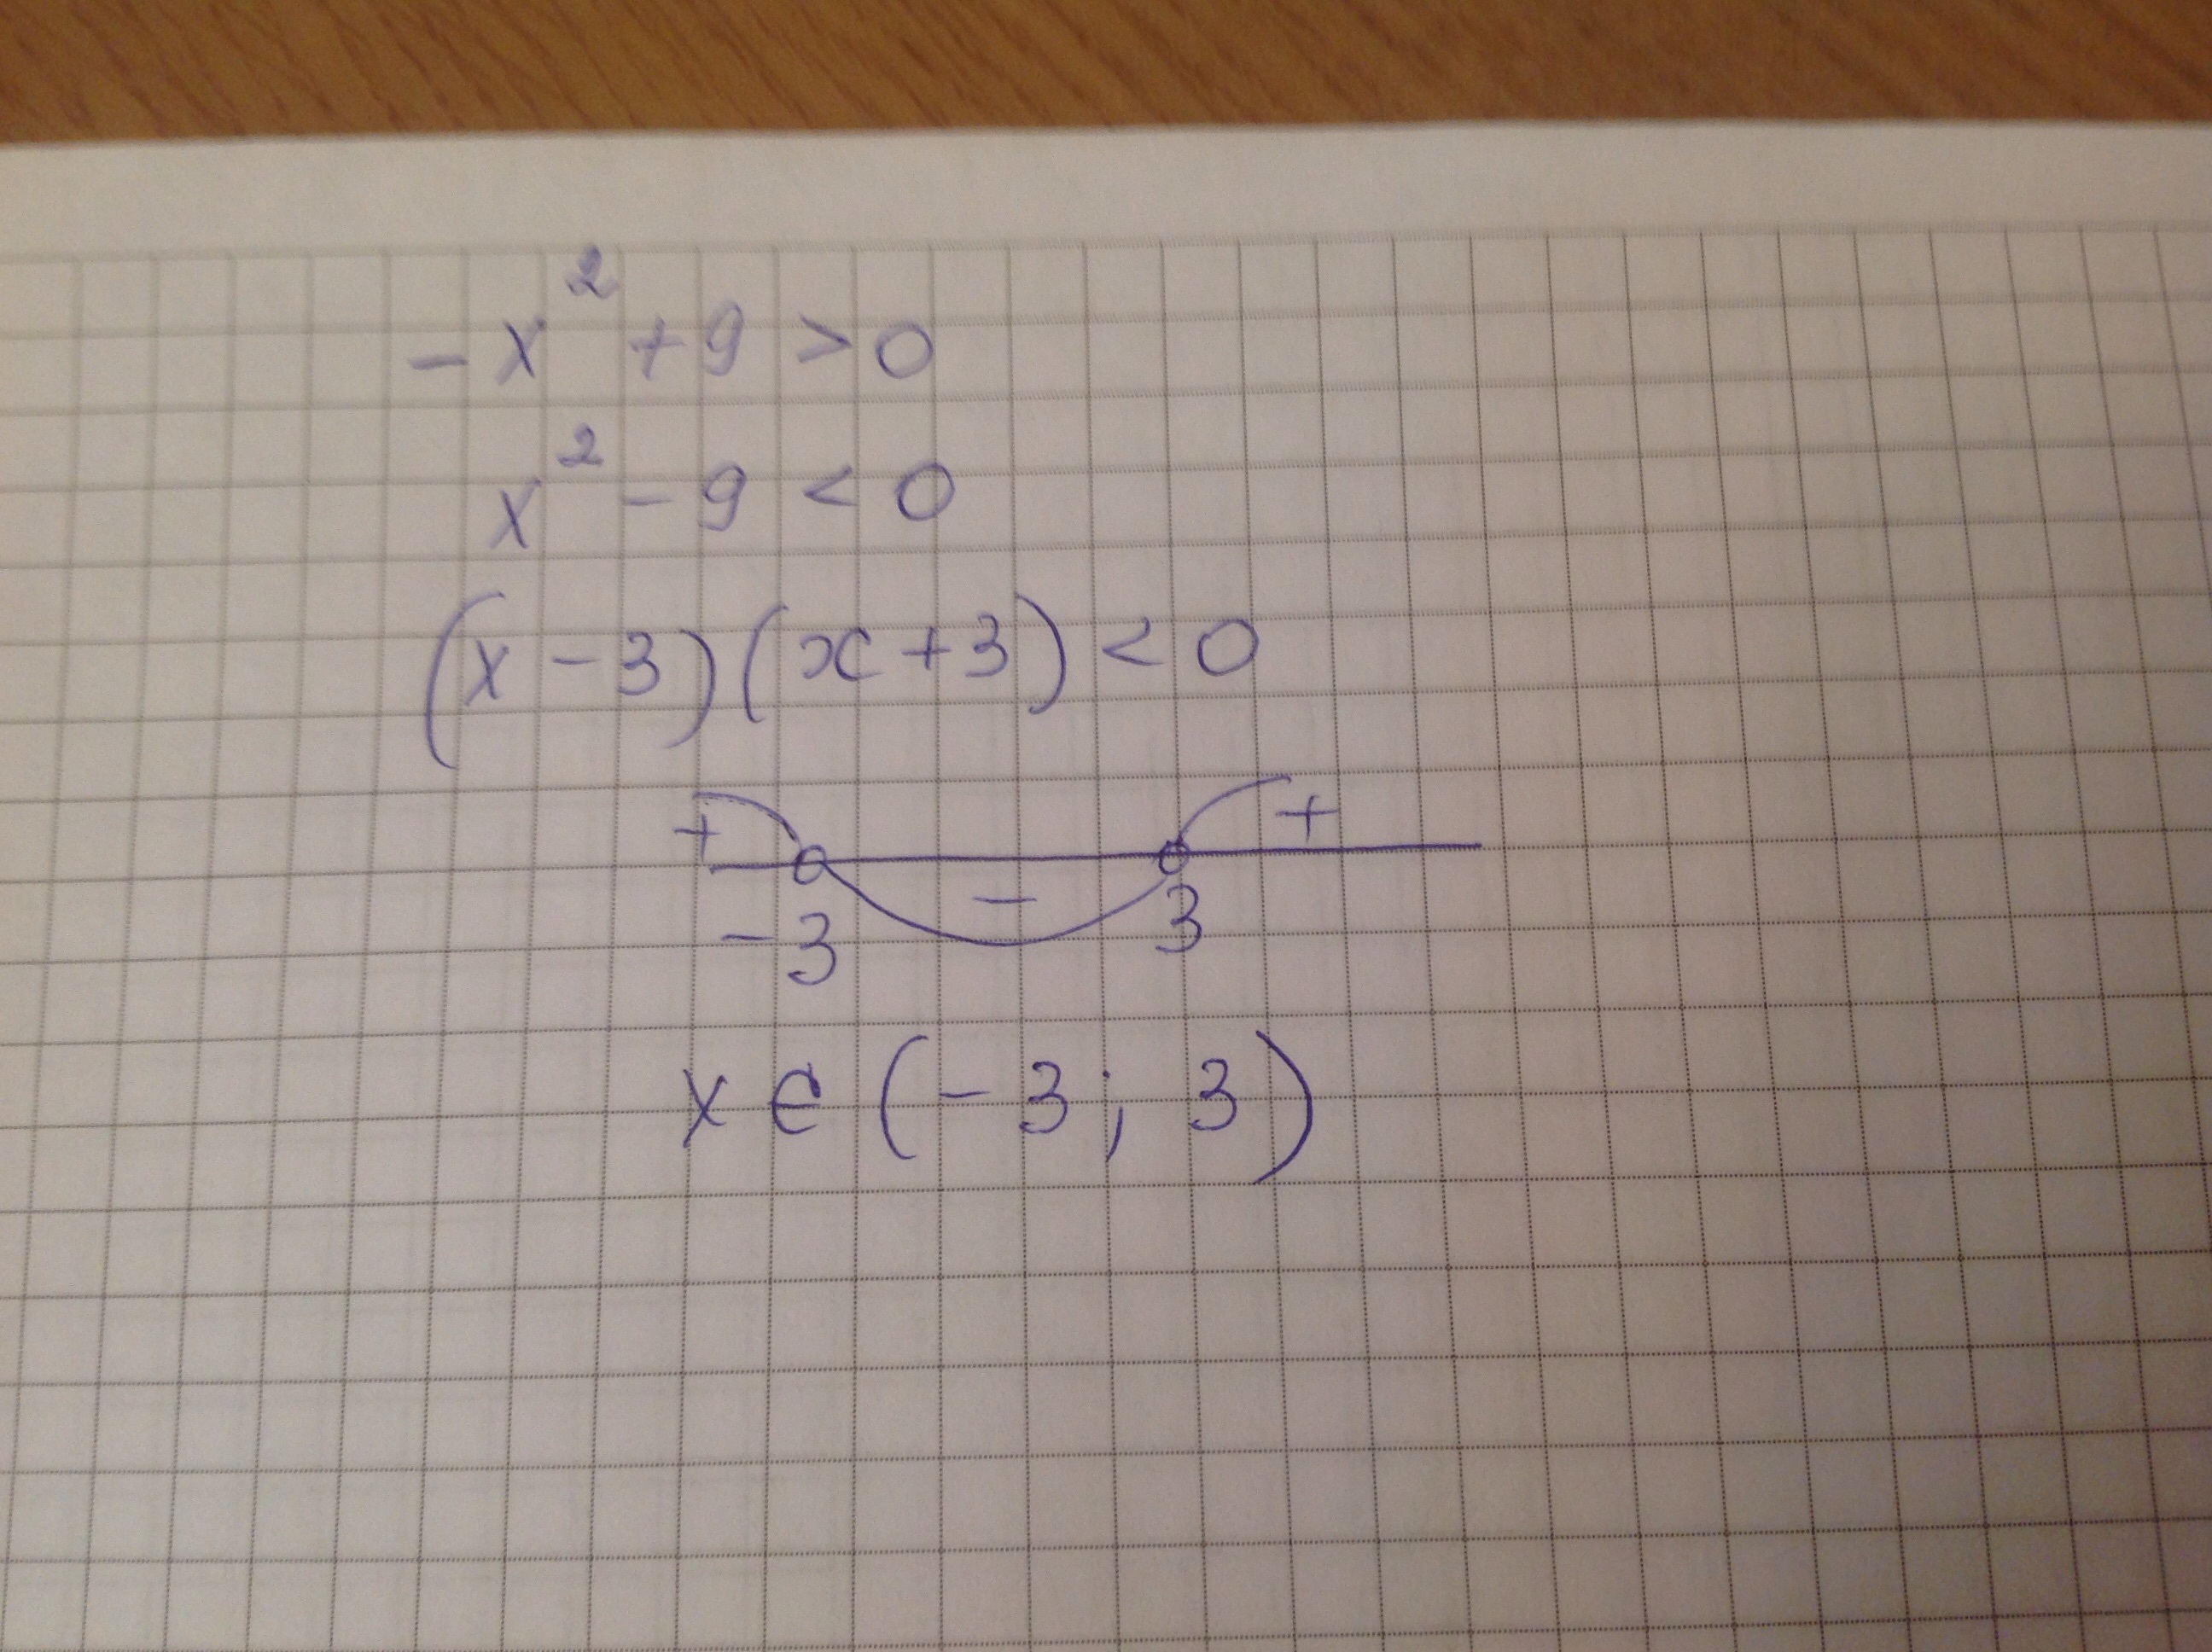 -x² + 9 > 0
x² - 9 < 0
(x - 3)(x + 3) < 0
+ - +
-3 3
x ∈ (-3; 3)